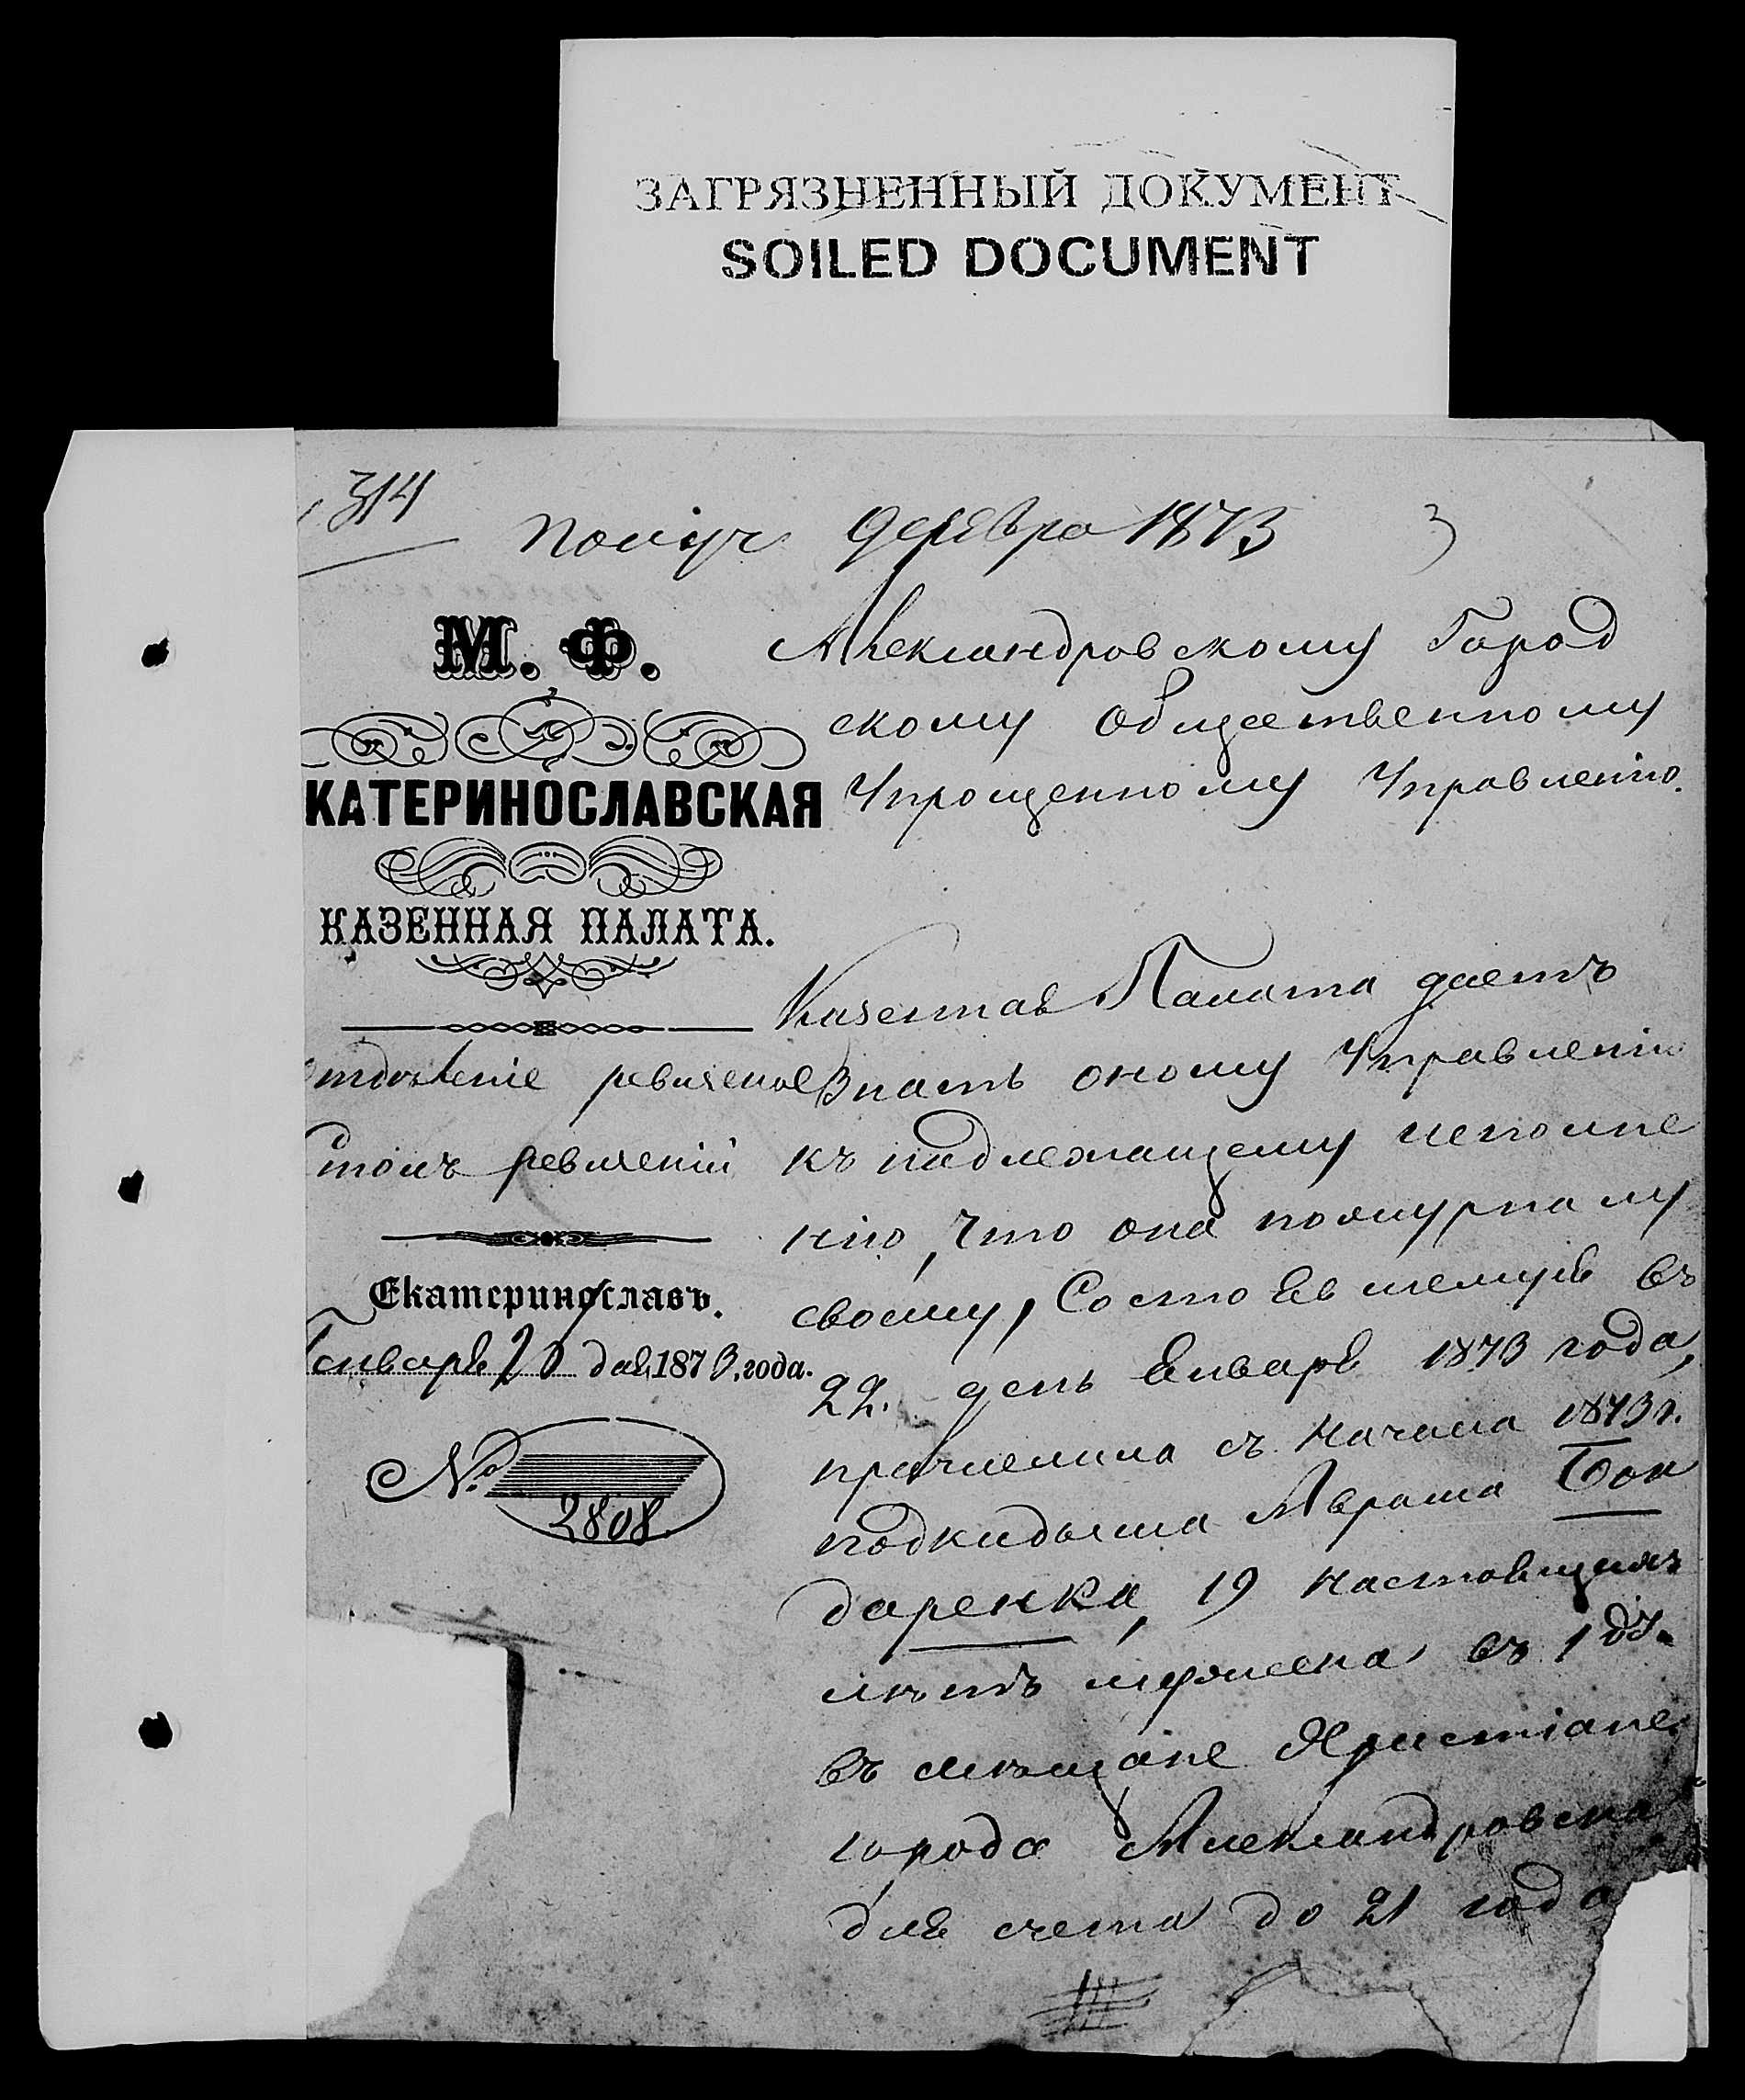 ЗАГРЯЗНЕННЫЙ ДОКУМЕНТ
SOILED DOCUMENT
314
Получ 9 февра 1873
3
М. Ф.
КАТЕРИНОСЛАВСКАЯ
КАЗЕННАЯ ПАЛАТА.
тдѣленіе ревизское
Столъ ревизскій
Екатеринославъ.
Января 26 дня 1873 года.
№ 2808
Александровскому Город
скому общественному
Упрощенному Управленію.
Казенная Палата даетъ
знать оному Управленію
къ надлежащему исполне
нію, что она по журналу
своему, состоявшемуся въ
22. день Января 1873 года,
причислила съ начала 1873 г.
подкидыша Аврама Бон
даренка, 19 настоящихъ
лѣтъ мужеска въ 1 дѵ.
въ мѣщане Христіане
города Александровска
для счета до 21 года